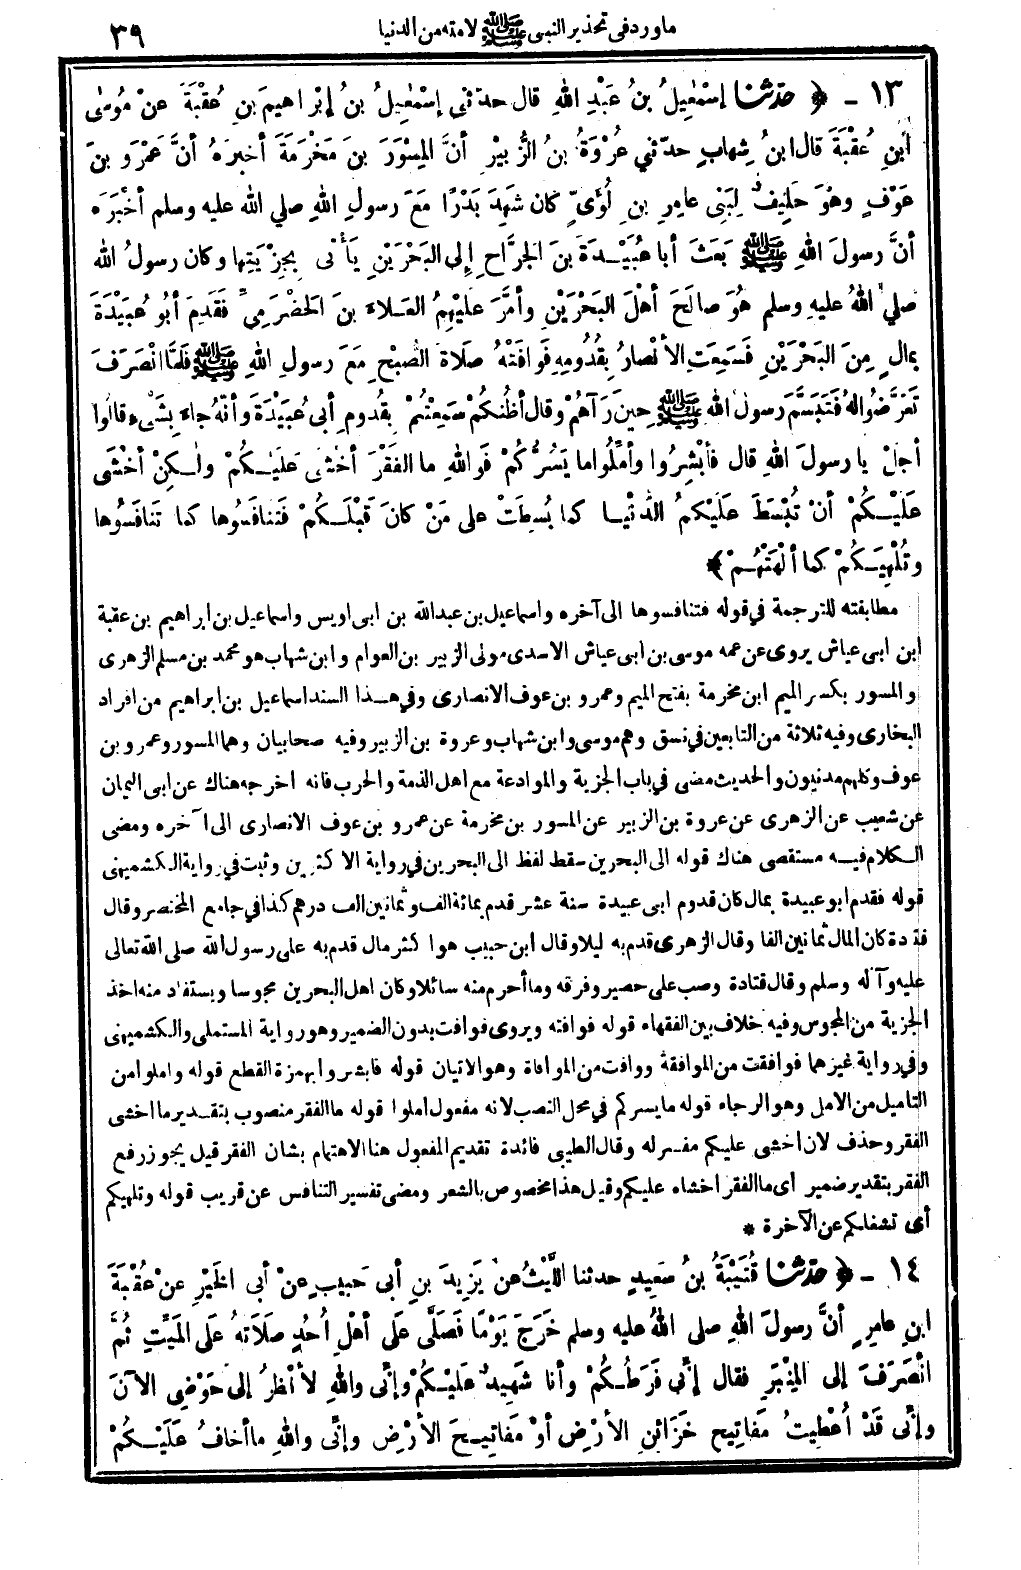 ما ورد في تحذير النبي ﷺ لامته من الدنيا ٣٩
١٣ - ﴿ حَدَّثَنَا إِسْمَاعِيلُ بنُ عَبْدِ اللهِ قال حدثنى إِسْمَاعِيلُ بنُ إِبْرَاهِيمَ بنِ عُقْبَةَ عنْ مُوسَى
ابنِ عُقْبَةَ قال ابنُ شِهابٍ حدّثني عُرْوَةُ بنُ الزُّبيْرِ أنَّ المِسْوَرَ بنَ مَخْرَمَةَ أخبرهُ أنَّ عَمْرَو بنَ
عَوْفٍ وهْوَ حَلِيفٌ لِبَنِى عامِرِ بنِ لُؤَىٍّ كان شَهِدَ بَدْرًا مَعَ رسولِ اللهِ صلي الله عليه وسلم أخْبَرَه
أنَّ رسولَ اللهِ ﷺ بَعَثَ أبا عُبَيْدَةَ بنَ الجَرَّاحِ إلى البَحْرَيْنِ يَأتى بِجِزْيَتِها وكان رسولُ الله
صلي اللهُ عليهِ وسلم هُوَ صالَحَ أهْلَ البَحْرَيْنِ وأمَّرَ علَيْهِمُ العَلاءَ بنَ الحَضْرَمِيِّ فَقَدِمَ أبُو عُبَيْدَةَ
بمالٍ مِنَ البَحْرَيْنِ فَسَمِعَتِ الأنْصارُ بِقُدُومِهِ فَوَافَتْهُ صَلاةَ الصُّبْحِ مَعَ رسولِ اللهِ ﷺ فلَمَّا انْصَرَفَ
تَعَرَّضُوا لهُ فَتَبَسَّمَ رسولُ اللهِ ﷺ حِينَ رَآهُمْ وقال أظُنُّكُمْ سَمِعْتُمْ بِقُدومِ أبى عُبَيْدَةَ وأنَّهُ جاءَ بِشَىْءٍ قالُوا
أجَلْ يا رسولَ اللهِ قال فأبْشِرُوا وأمِّلُوا ما يَسُرُّكُمْ فَوَاللهِ ما الفَقْرَ أخْشَى علَيْكُمْ ولكِنْ أخْشَى
علَيْكُمْ أنْ تُبْسَطَ علَيْكُمُ الدُّنْيا كما بُسِطَتْ على مَنْ كانَ قَبْلَكُمْ فَتَنافَسُوها كما تَنافَسُوها
وتُلْهِيَكُمْ كما ألْهَتْهُمْ ﴾
مطابقته للترجمة في قوله فتنافسوها الى آخره واسماعيل بن عبد الله بن ابى اويس واسماعيل بن ابراهيم بن عقبة
ابن ابى عياش يروى عن عمه موسى بن ابى عياش الاسدى مولى الزبير بن العوام وابن شهاب هو محمد بن مسلم الزهرى
والمسور بكسر الميم ابن مخرمة بفتح الميم وعمرو بن عوف الانصارى وفي هذا السند اسماعيل بن ابراهيم من افراد
البخارى وفيه ثلاثة من التابعين في نسق وهم موسى وابن شهاب وعروة بن الزبير وفيه صحابيان وهما المسور وعمرو بن
عوف وكلهم مدنيون والحديث مضى في باب الجزية والموادعة مع اهل الذمة والحرب فانه اخرجه هناك عن ابى اليمان
عن شعيب عن الزهرى عن عروة بن الزبير عن المسور بن مخرمة عن عمرو بن عوف الانصارى الى آخره ومضى
الكلام فيه مستقصى هناك قوله الى البحرين سقط لفظ الى البحرين في رواية الاكثرين وثبت في رواية الكشميهنى
قوله فقدم ابو عبيدة بمال كان قدوم ابى عبيدة سنة عشر قدم بمائة الف وثمانين الف درهم كذا في جامع المختصر وقال
قتادة كان المال ثمانين الفا وقال الزهرى قدم به ليلا وقال ابن حبيب هو اكثر مال قدم به على رسول الله صلى الله تعالى
عليه وآله وسلم وقال قتادة وصب على حصير وفرقه وما أحرم منه سائلا وكان اهل البحرين مجوسا ويستفاد منه اخذ
الجزية من المجوس وفيه خلاف بين الفقهاء قوله فوافته ويروى فوافت بدون الضمير وهو رواية المستملى والكشميهنى
وفي رواية غيرهما فوافقت من الموافقة ووافت من الموافاة وهو الاتيان قوله فابشروا بهمزة القطع قوله واملوا من
التاميل من الامل وهو الرجاء قوله ما يسركم في محل النصب لانه مفعول املوا قوله ما الفقر منصوب بتقدير ما اخشى
الفقر وحذف لان اخشى عليكم مفسر له وقال الطيبى فائدة تقديم المفعول هنا الاهتمام بشان الفقر قيل يجوز رفع
الفقر بتقدير ضمير أى ما الفقر اخشاه عليكم وقيل هذا مخصوص بالشعر ومضى تفسير التنافس عن قريب قوله وتلهيكم
أى تشغلكم عن الآخرة *
١٤ - ﴿ حَدَّثَنَا قُتَيْبَةُ بنُ سَعِيدٍ حدثنا اللَّيْثُ عنْ يَزِيدَ بنِ أبى حَبِيبٍ عنْ أبى الخَيْرِ عنْ عُقْبَةَ
ابنِ عامِرٍ أنَّ رسولَ اللهِ صلى اللهُ عليه وسلم خَرَجَ يَوْمًا فَصَلَّى عَلَى أهْلِ أُحُدٍ صَلاتَهُ عَلَى المَيِّتِ ثُمَّ
انْصَرَفَ إلى المِنْبَرِ فقال إنِّي فَرَطُكُمْ وأنا شَهِيدٌ علَيْكُمْ وإنِّى واللهِ لأَنْظُرُ إلى حَوْضِى الآنَ
وإنِّى قَدْ أُعْطِيتُ مَفاتِيحَ خَزَائِنِ الأرْضِ أوْ مَفاتِيحَ الأرْضِ وإنِّى واللهِ ما أخافُ علَيْكُمْ